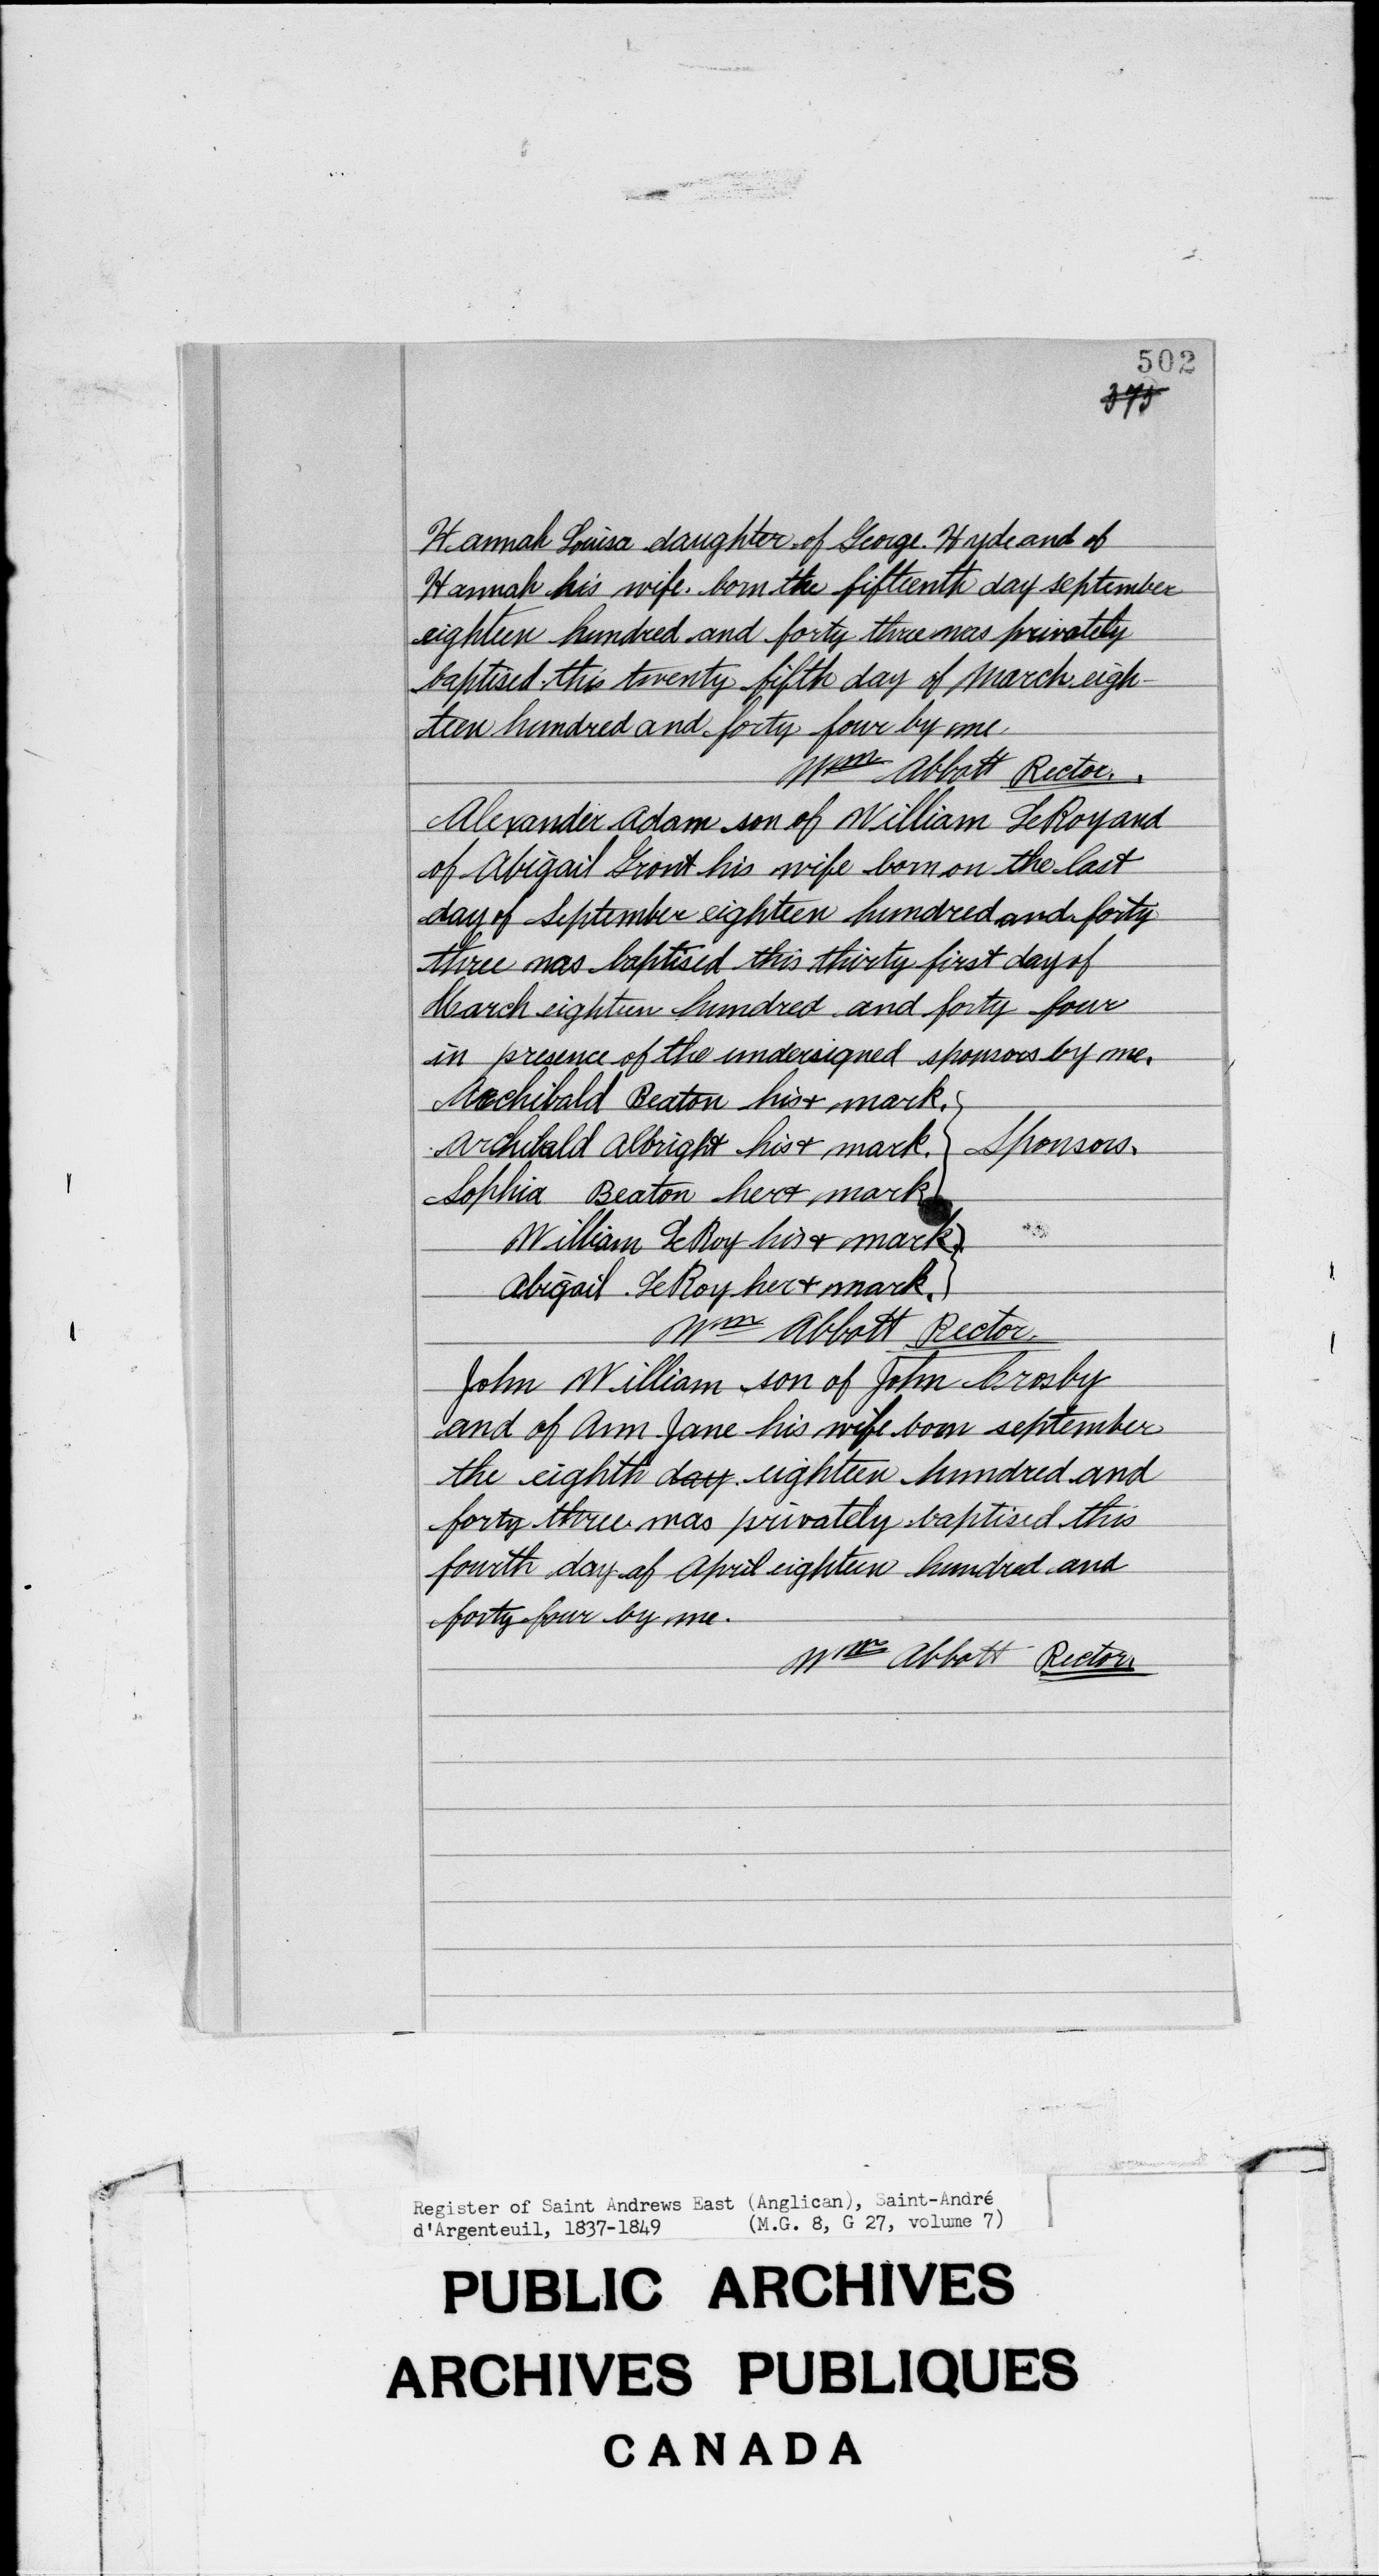 502
375
Hannah Louisa daughter of George Hyde and of
Hannah his wife. born the fifteenth day september
eighteen hundred and forty three was privately
baptised this twenty fifth day of March eigh-
teen hundred and forty four by me
Wm Abbott Rector.
Alexander Adam son of William LeRoy and
of Abigail Gront his wife born on the last
day of September eighteen hundred and forty
three was baptised this thirty first day of
March eighteen hundred and forty four
in presence of the undersigned sponsors by me.
Archibald Beaton his + mark.
Archibald Albright his + mark. } Sponsors.
Sophia Beaton her + mark
William LeRoy his + mark
Abigail LeRoy her + mark.
Wm Abbott Rector.
John William son of John Crosby
and of Ann Jane his wife born september
the eighth day eighteen hundred and
forty three was privately baptised this
fourth day of April eighteen hundred and
forty four by me.
Wm Abbott Rector.
Register of Saint Andrews East (Anglican), Saint-André
d'Argenteuil, 1837-1849 (M.G. 8, G 27, volume 7)
PUBLIC ARCHIVES
ARCHIVES PUBLIQUES
CANADA